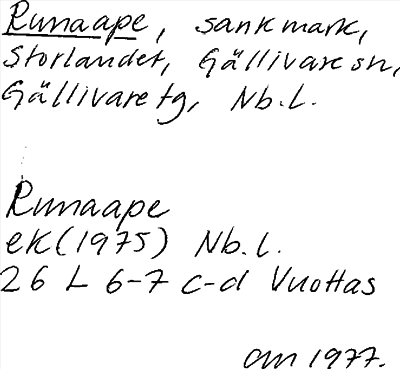 Runaape, sank mark,
Storlandet, Gällivare sn,
Gällivare tg, Nb.l.
Runaape
ek (1975) Nb.l.
26 L 6-7 c-d Vuottas
am 1977.